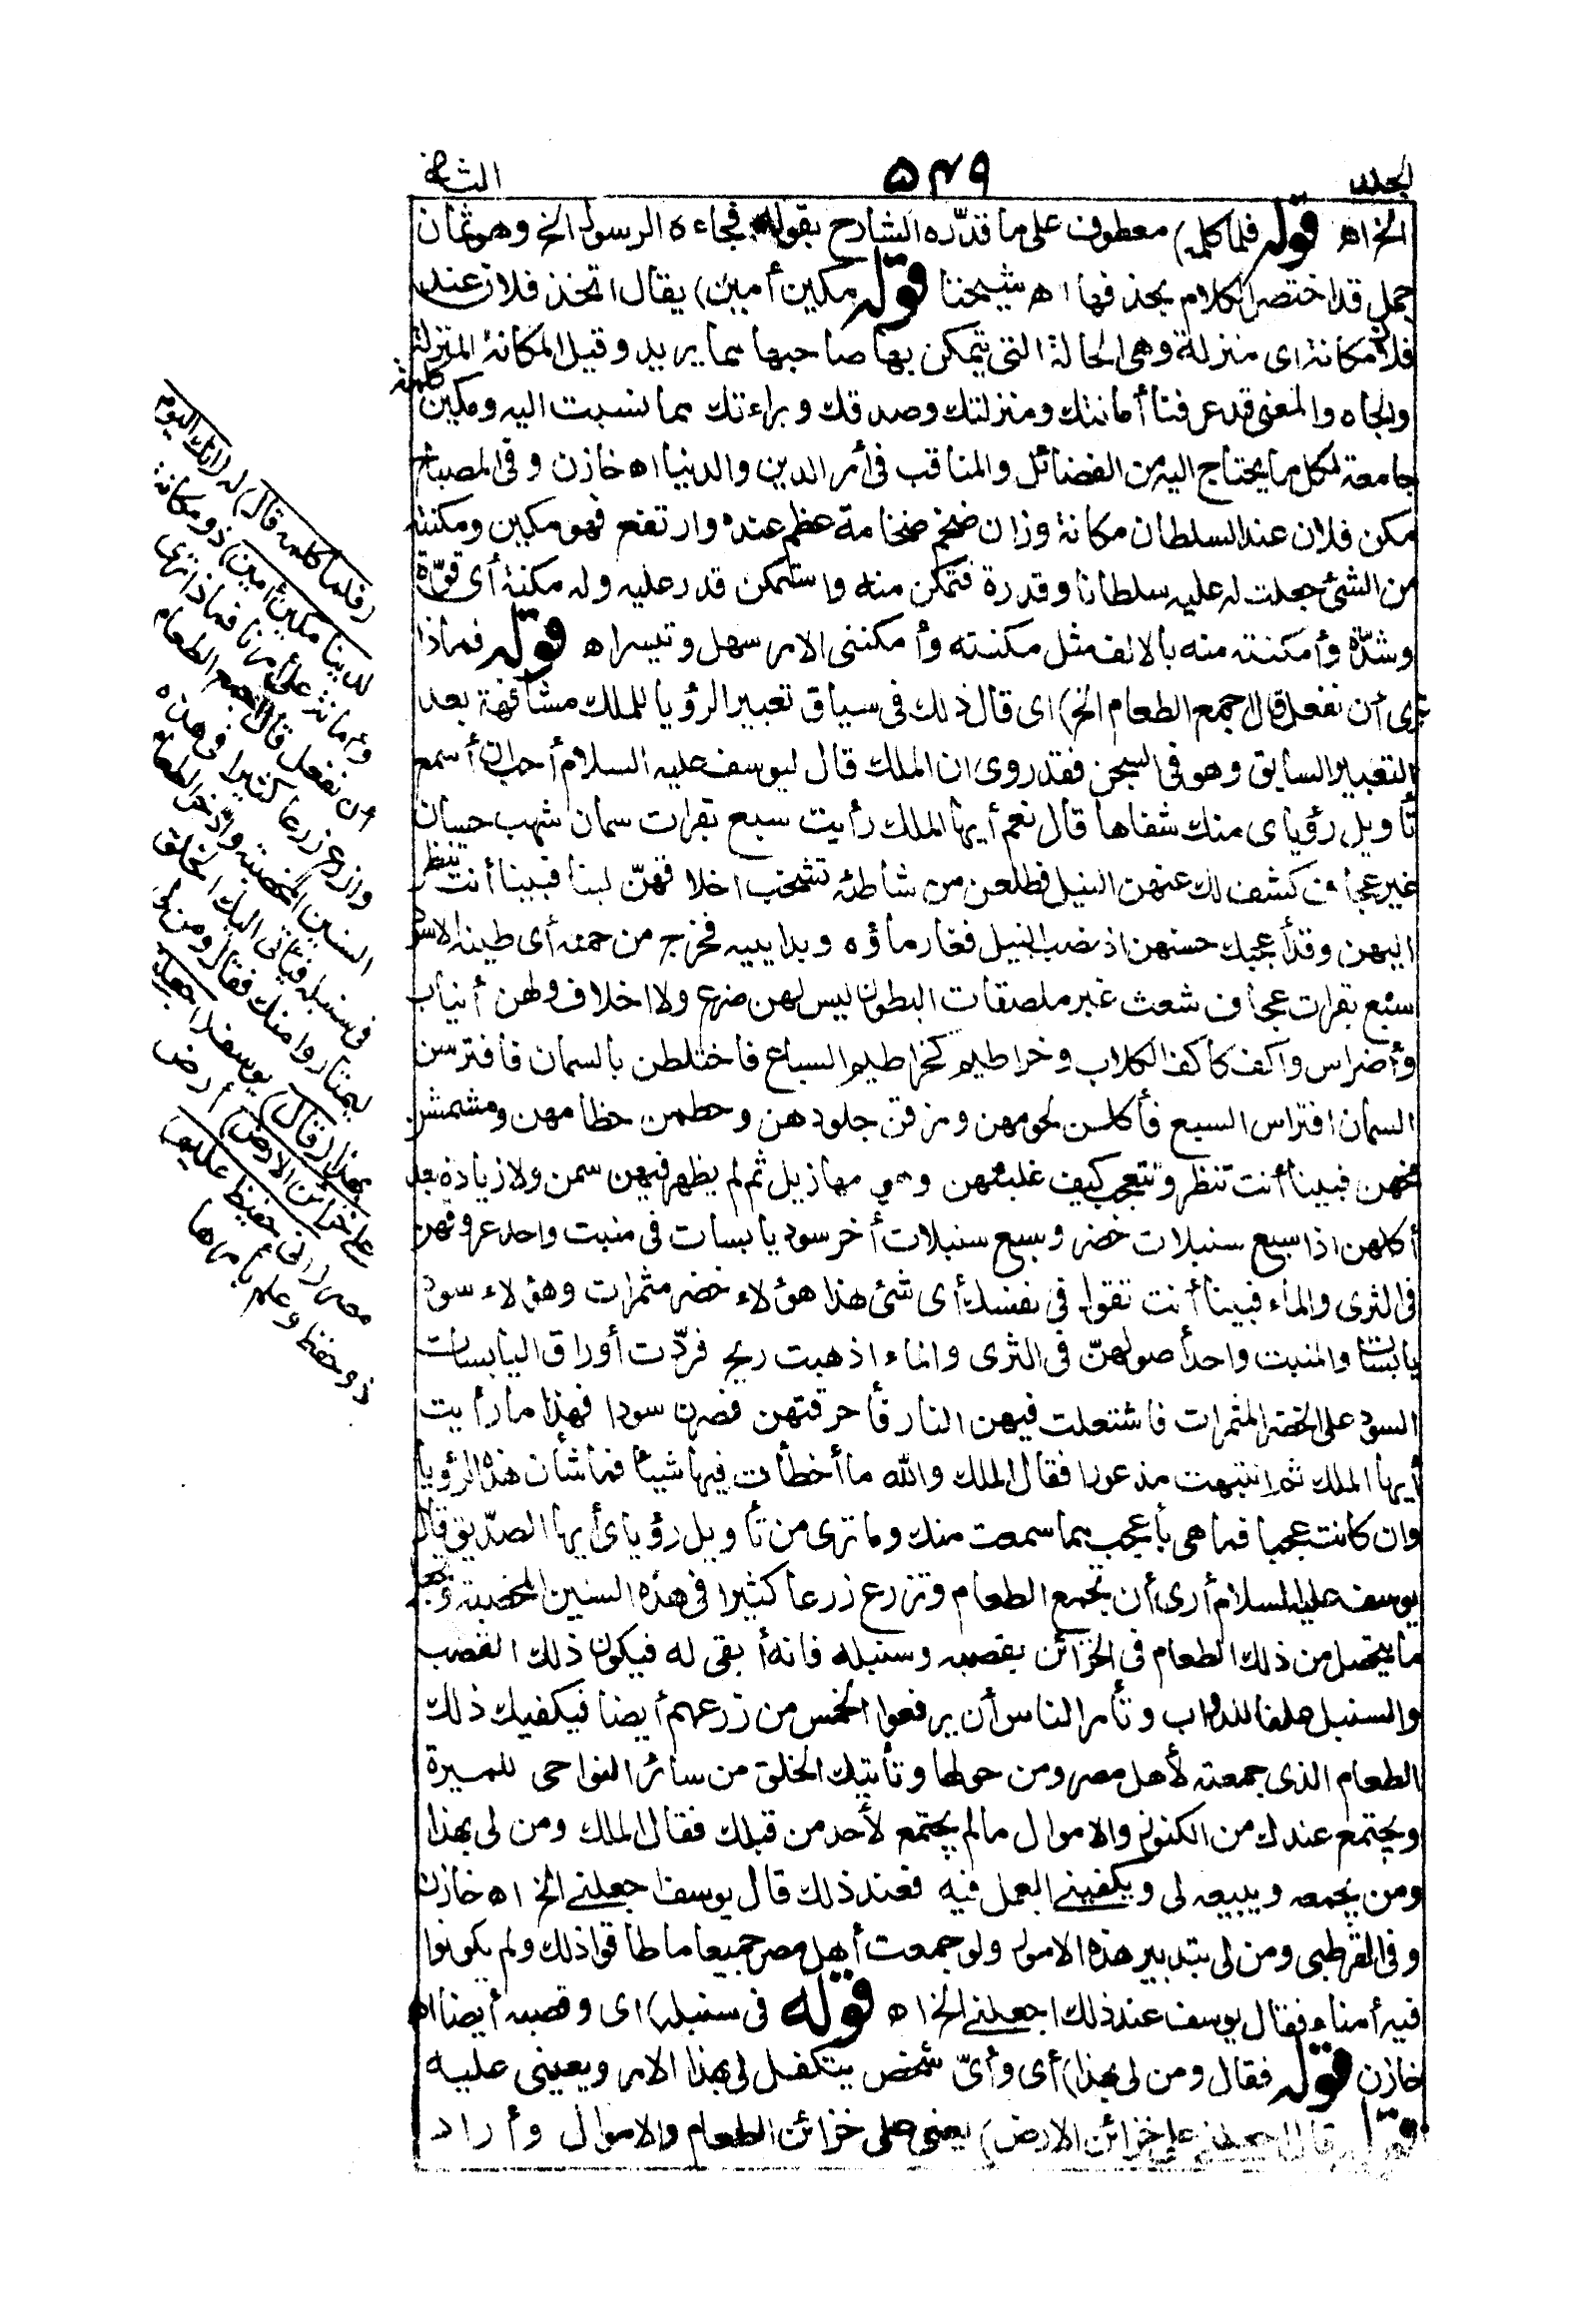 الجلد ٥٤٩ الثاني
الخ اه قوله فلما كلمه) معطوف على ما قدّره الشارح بقوله فجاءه الرسول الخ وهو ثمان
جمل قد اختصر الكلام بحذفها اه شيخنا قوله مكين أمين) يقال اتخذ فلان عند
فلان مكانة اى منزلة وهى الحالة التى يتمكن بها صاحبها مما يريد وقيل المكانة المنزلة
والجاه والمعنى قد عرفنا أمانتك ومنزلتك وصدقك وبراءتك مما نسبت اليه ومكين كلمة
جامعة لكل ما يحتاج اليه من الفضائل والمناقب فى أمر الدين والدنيا اه خازن وفى المصباح
مكن فلان عند السلطان مكانة وزان ضخم ضخامة عظم عنده وارتفع فهو مكين ومكنته
من الشئ جعلت له عليه سلطانا وقدرة فتمكن منه واستمكن قدر عليه وله مكنة أى قوّة
وشدّة وأمكنته منه بالالف مثل مكنته وأمكننى الامر سهل وتيسر اه قوله فماذا
ترى أن نفعل قال اجمع الطعام الخ) اى قال ذلك فى سياق تعبير الرؤيا للملك مشافهة بعد
التعبير السابق وهو فى السجن فقد روى ان الملك قال ليوسف عليه السلام أحب ان أسمع
تأويل رؤياى منك شفاها قال نعم أيها الملك رأيت سبع بقرات سمان شهب حسان
غير عجاف كشف لك عنهن النيل فطلعن من شاطئه تشخب اخلافهنّ لبنا فبينا أنت تنظر
اليهن وقد أعجبك حسنهن اذ نضب النيل فغار ماؤه وبدا يبسه فخرج من حمئه أى طينه الاسود
سبع بقرات عجاف شعث غبر ملصقات البطون ليس لهن ضرع ولا اخلاف ولهن أنياب
وأضراس وأكف كأكف الكلاب وخراطيم كخراطيم السباع فاختلطن بالسمان فافترسن
السمان افتراس السبع فأكلن لحومهن ومزقن جلودهن وحطمن عظامهن ومشمشن
مخهن فبينا أنت تنظر وتتعجب كيف غلبنهن وهى مهازيل ثم لم يظهر فيهن سمن ولا زيادة بعد
أكلهن اذا سبع سنبلات خضر وسبع سنبلات أخر سود يابسات فى منبت واحد عروقهن
فى الثرى والماء فبينا أنت تقول فى نفسك أى شئ هذا هؤلاء خضر مثمرات وهؤلاء سود
يابسات والمنبت واحد أصولهنّ فى الثرى والماء اذ هبت ريح فردّت أوراق اليابسات
السود على الخضر المثمرات فاشتعلت فيهن النار فأحرقتهن فصرن سودا فهذا ما رأيت
أيها الملك ثم انتبهت مذعورا فقال الملك والله ما أخطأت فيها شيئا فما شأن هذه الرؤيا
وان كانت عجبا فما هى بأعجب مما سمعت منك وما ترى من تأويل رؤياى أيها الصدّيق قال
يوسف عليه السلام أرى أن تجمع الطعام وتزرع زرعا كثيرا فى هذه السنين المخصبة وتجعل
ما يتحصل من ذلك الطعام فى الخزائن بقصبه وسنبله فانه أبقى له فيكون ذلك القصب
والسنبل علفا للدواب وتأمر الناس أن يرفعوا الخمس من زرعهم أيضا فيكفيك ذلك
الطعام الذى جمعته لأهل مصر ومن حولها وتأتيك الخلق من سائر النواحى للميرة
ويجتمع عندك من الكنوز والاموال ما لم يجتمع لأحد من قبلك فقال الملك ومن لى بهذا
ومن يجمعه ويبيعه لى ويكفينى العمل فيه فعند ذلك قال يوسف اجعلنى الخ اه خازن
وفى القرطبى ومن لى بتدبير هذه الامور ولو جمعت أهل مصر جميعا ما طاقوا ذلك ولم يكونوا
فيه أمناء فقال يوسف عند ذلك اجعلنى الخ اه قوله فى سنبله) اى وقصبه أيضا اه
خازن قوله فقال ومن لى بهذا) أى وأىّ شخص يتكفل لى بهذا الامر ويعيننى عليه
قوله قال اجعلنى على خزائن الارض) يعنى على خزائن الطعام والاموال وأراد
(فلما كلمه قال) له (انك اليوم
لدينا مكين أمين) ذو مكانة
وأمانة على أمرنا فماذا ترى
أن نفعل قال اجمع الطعام
وازرع زرعا كثيرا فى هذه
السنين المخصبة وادّخر الطعام
فى سنبله فتأتى اليك الخلق
ليمتاروا منك فقال ومن لى
بهذا (قال) يوسف (اجعلنى
على خزائن الارض) أرض
مصر (انى حفيظ عليم)
ذو حفظ وعلم بأمرها